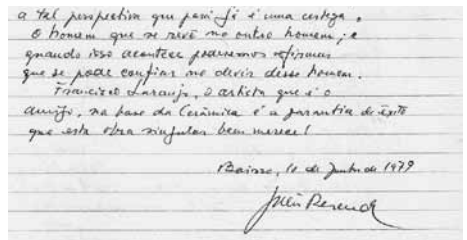 a tal perspectiva que para já é uma certeza.
O homem que se revê no outro homem; e
quando isso acontece poderemos afirmar
que se pode confiar no devir desse homem.
Francisco Laranjo, o artista que é o
amigo, na base da Cerâmica é a garantia do êxito
que esta obra singular bem merece!
10 de Junho de 1979
Júlio Resende